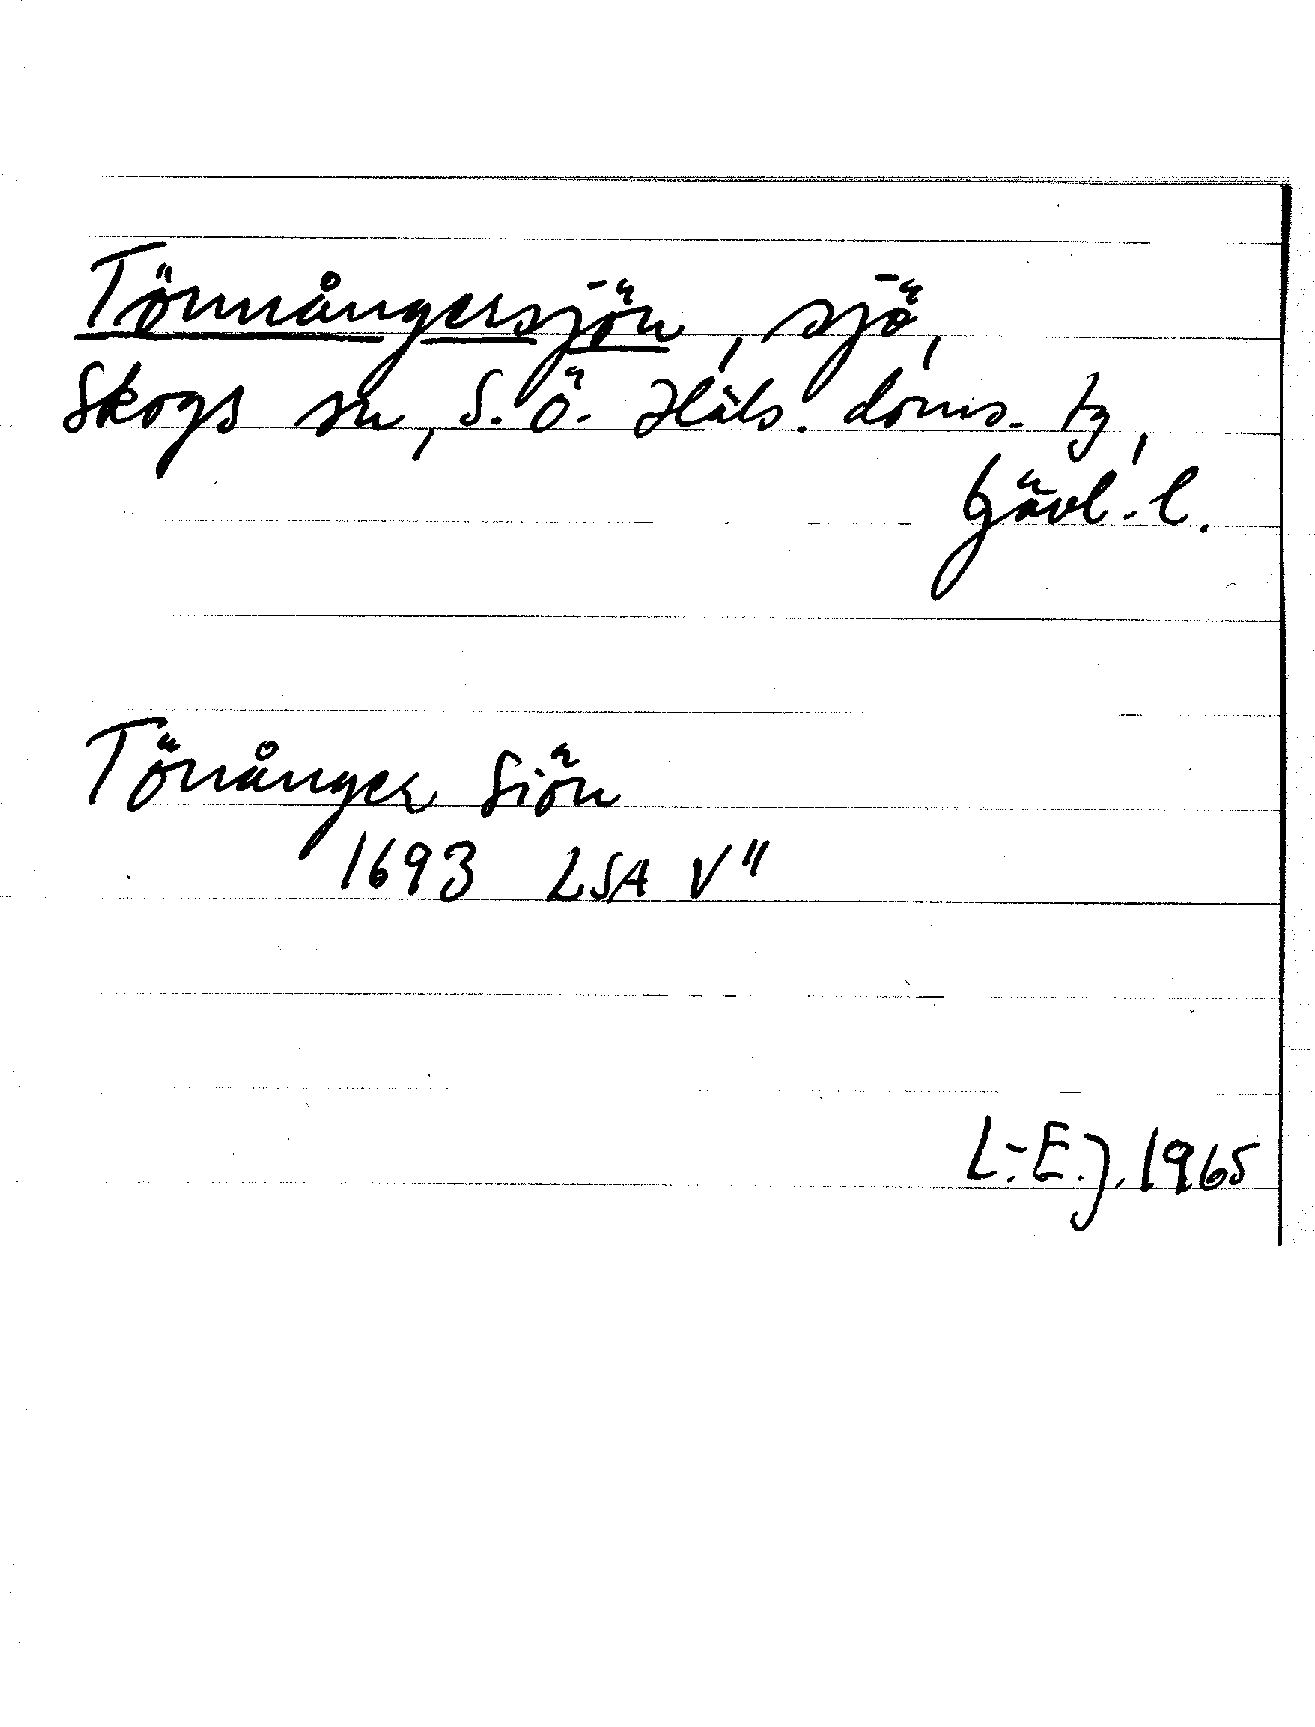 Törnångersjön, sjö,
Skogs sn, S. Ö. Häls. doms. tg,
Gävl. l.
Törånger Siön
1693 LSA V"
L.-E. J. 1965